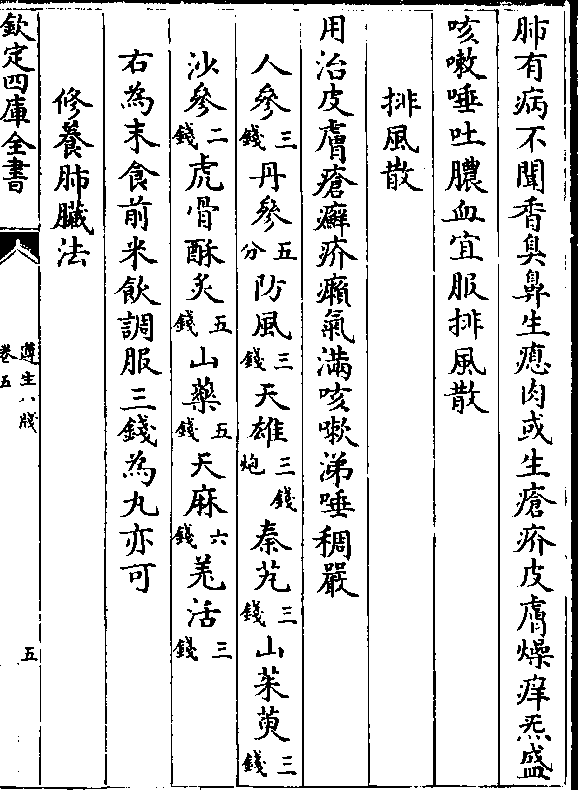 肺有病不聞香臭鼻生瘜肉或生瘡疥皮膚燥痒炁盛
咳嗽唾吐膿血宜服排風散
排風散
用治皮膚瘡癬疥癩氣滿咳嗽涕唾稠嚴
人參三錢丹參五分防風三錢天雄三錢炮秦艽三錢山茱萸三錢
沙參二錢虎骨酥炙五錢山藥五錢天麻六錢羌活三錢
右為末食前米飲調服三錢為丸亦可
修養肺臟法
欽定四庫全書
遵生八牋
卷五
五